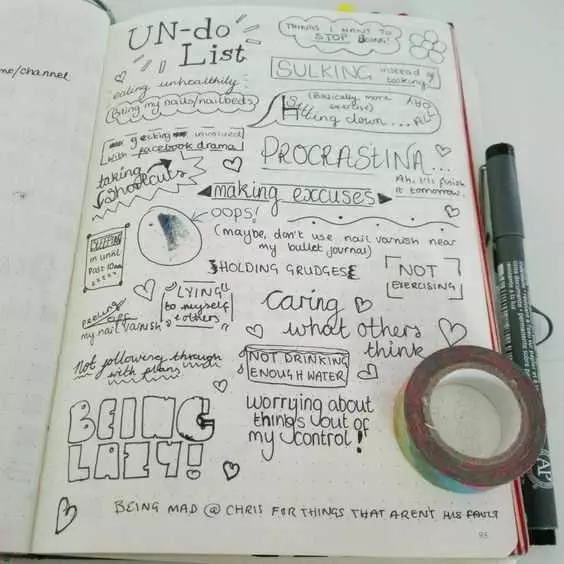 me/channel
UN-do
List
THINGS I WANT TO
STOP DOING!
eating unhealthily
Biting my nails/nailbeds
SULKING instead of
talking.
(Basically, more
exercise)
Sitting down... ALL
DAY
getting involved
with facebook drama
PROCRASTINA...
Ah, I'll finish
it tomorrow.
taking
shortcuts
making excuses
OOPS!
(maybe, don't use nail varnish near
my bullet journal)
in until
Past 10am
HOLDING GRUDGES
NOT
EXERCISING
PEELING
OFF
my nail varnish
LYING
to myself
& others
Caring
what others
think
Not following through
with plans
NOT DRINKING
ENOUGH WATER
BEING
LAZY!
worrying about
things out of
my control!
BEING MAD @ CHRIS FOR THINGS THAT AREN'T HIS FAULT